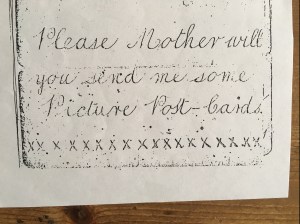 Please Mother will
you send me some
Picture Post-Cards.
xx x x x x x x x x x x x x x x x x